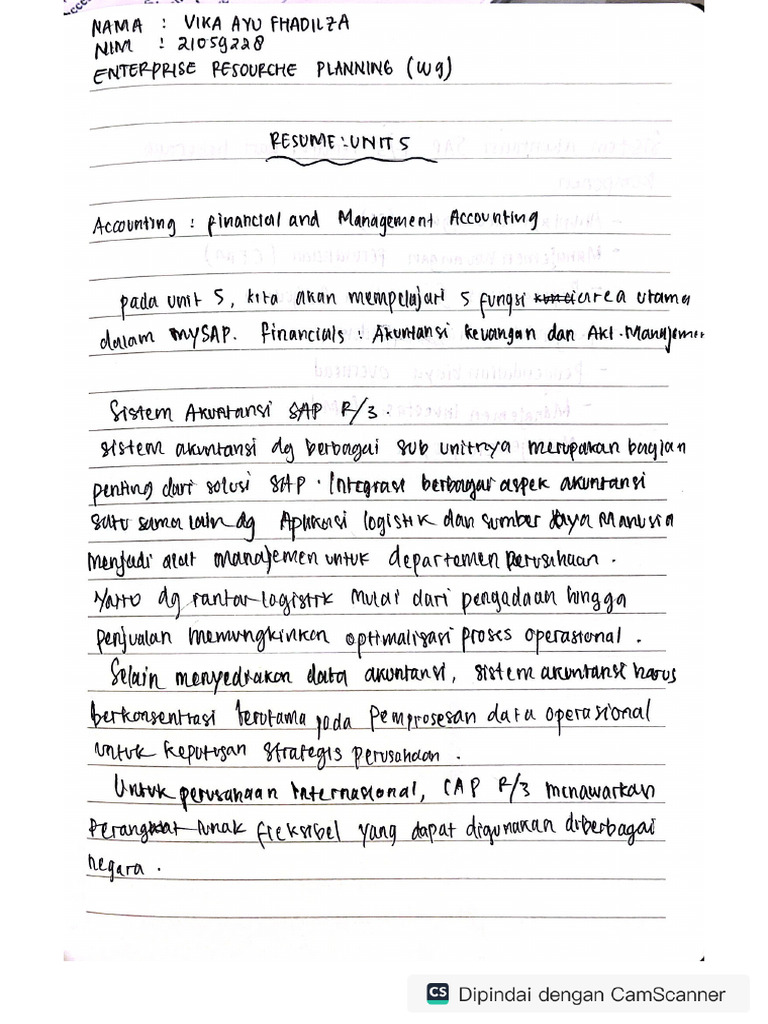 NAMA : VIKA AYU FHADILZA
NIM : 21059228
ENTERPRISE RESOURCHE PLANNING (W9)
RESUME : UNIT 5
Accounting : Financial and Management Accounting
pada unit 5, kita akan mempelajari 5 fungsi kunci area utama
dalam mySAP. Financials : Akuntansi keuangan dan Akt. Manajemen
Sistem Akuntansi SAP R/3.
sistem akuntansi dg berbagai sub unitnya merupakan bagian
penting dari solusi SAP. Integrasi berbagai aspek akuntansi
satu sama lain dg Aplikasi logistik dan sumber daya Manusia
menjadi alat manajemen untuk departemen perusahaan.
dg rantai logistik mulai dari pengadaan hingga
penjualan memungkinkan optimalisasi proses operasional.
Selain menyediakan data akuntansi, sistem akuntansi harus
berkonsentrasi terutama pada Pemprosesan data operasional
untuk keputusan strategis perusahaan.
Untuk perusahaan Internasional, CAP R/3 menawarkan
Perangkat lunak fleksibel yang dapat digunakan diberbagai
negara.
CS Dipindai dengan CamScanner